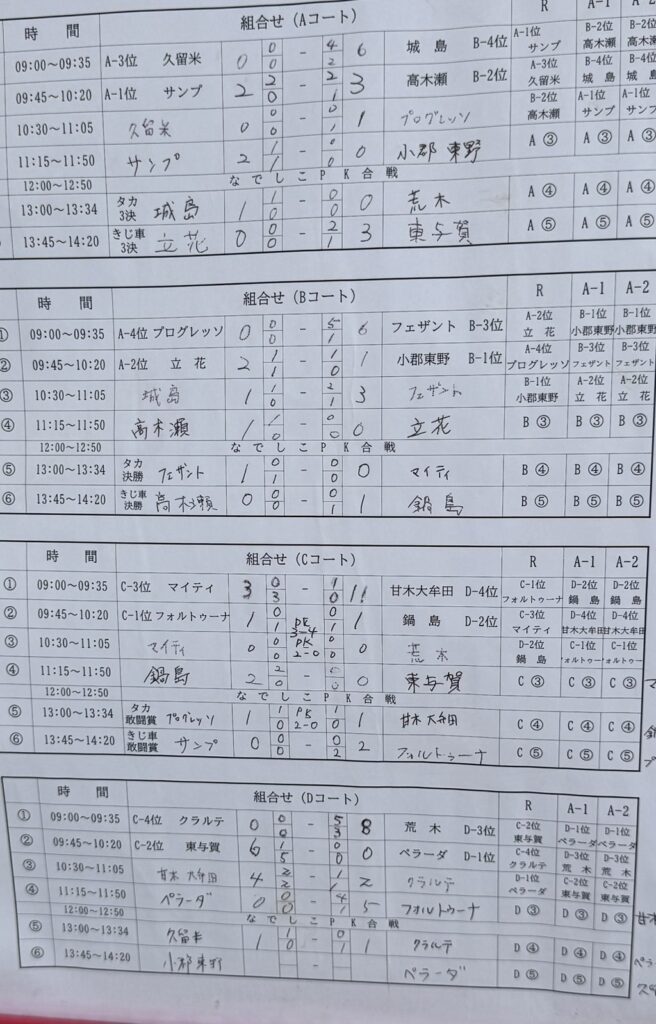 時 間 組合せ（Aコート） R A-1 A-2
09:00～09:35 A-3位 久留米 0 0 - 4 6 城 島 B-4位 A-1位 サンプ B-2位 高木瀬 B-2位 高木瀬
0 2
09:45～10:20 A-1位 サンプ 2 2 - 2 3 高木瀬 B-2位 A-3位 久留米 B-4位 城 島 B-4位 城 島
0 1
10:30～11:05 久留米 0 0 - 0 1 プログレッソ B-2位 高木瀬 A-1位 サンプ A-1位 サンプ
0 1
11:15～11:50 サンプ 2 1 - 0 0 小郡東野 A ③ A ③ A ③
1 0
12:00～12:50 なでしこPK合戦
13:00～13:34 タカ 3決 城島 1 1 - 0 0 荒木 A ④ A ④ A ④
0 0
13:45～14:20 きじ車 3決 立花 0 0 - 2 3 東与賀 A ⑤ A ⑤ A ⑤
0 1
時 間 組合せ（Bコート） R A-1 A-2
① 09:00～09:35 A-4位 プログレッソ 0 0 - 5 6 フェザント B-3位 A-2位 立 花 B-1位 小郡東野 B-1位 小郡東野
0 1
② 09:45～10:20 A-2位 立 花 2 1 - 1 1 小郡東野 B-1位 A-4位 プログレッソ B-3位 フェザント B-3位 フェザント
1 0
③ 10:30～11:05 城島 1 1 - 2 3 フェザント B-1位 小郡東野 A-2位 立 花 A-2位 立 花
0 1
④ 11:15～11:50 高木瀬 1 1 - 0 0 立花 B ③ B ③ B ③
0 0
12:00～12:50 なでしこPK合戦
⑤ 13:00～13:34 タカ 決勝 フェザント 1 0 - 0 0 マイティ B ④ B ④ B ④
1 0
⑥ 13:45～14:20 きじ車 決勝 高木瀬 0 0 - 0 1 鍋島 B ⑤ B ⑤ B ⑤
0 1
時 間 組合せ（Cコート） R A-1 A-2
① 09:00～09:35 C-3位 マイティ 3 0 - 1 1 甘木大牟田 D-4位 C-1位 フォルトゥーナ D-2位 鍋 島 D-2位 鍋 島
3 0
② 09:45～10:20 C-1位 フォルトゥーナ 1 0 PK 3-4 0 1 鍋 島 D-2位 C-3位 マイティ D-4位 甘木大牟田 D-4位 甘木大牟田
1 1
③ 10:30～11:05 マイティ 0 0 PK 2-0 0 0 荒木 D-2位 鍋 島 C-1位 フォルトゥー C-1位 フォルトゥー
0 0
④ 11:15～11:50 鍋島 2 2 - 0 0 東与賀 C ③ C ③ C ③
0 0
12:00～12:50 なでしこPK合戦
⑤ 13:00～13:34 タカ 敢闘賞 プログレッソ 1 1 PK 2-0 0 1 甘木大牟田 C ④ C ④ C ④
0 1
⑥ 13:45～14:20 きじ車 敢闘賞 サンプ 0 0 - 0 2 フォルトゥーナ C ⑤ C ⑤ C ⑤
0 2
時 間 組合せ（Dコート） R A-1 A-2
① 09:00～09:35 C-4位 クラルテ 0 0 - 5 8 荒 木 D-3位 C-2位 東与賀 D-1位 ペラーダ D-1位 ペラーダ
0 3
② 09:45～10:20 C-2位 東与賀 6 1 - 0 0 ペラーダ D-1位 C-4位 クラルテ D-3位 荒 木 D-3位 荒 木
5 0
③ 10:30～11:05 甘木大牟田 4 2 - 1 2 クラルテ D-1位 ペラーダ C-2位 東与賀 C-2位 東与賀
2 1
④ 11:15～11:50 ペラーダ 0 0 - 4 5 フォルトゥーナ D ③ D ③ D ③
0 1
12:00～12:50 なでしこPK合戦
⑤ 13:00～13:34 久留米 1 1 - 0 1 クラルテ D ④ D ④ D ④
0 1
⑥ 13:45～14:20 小郡東野 - ペラーダ D ⑤ D ⑤ D ⑤